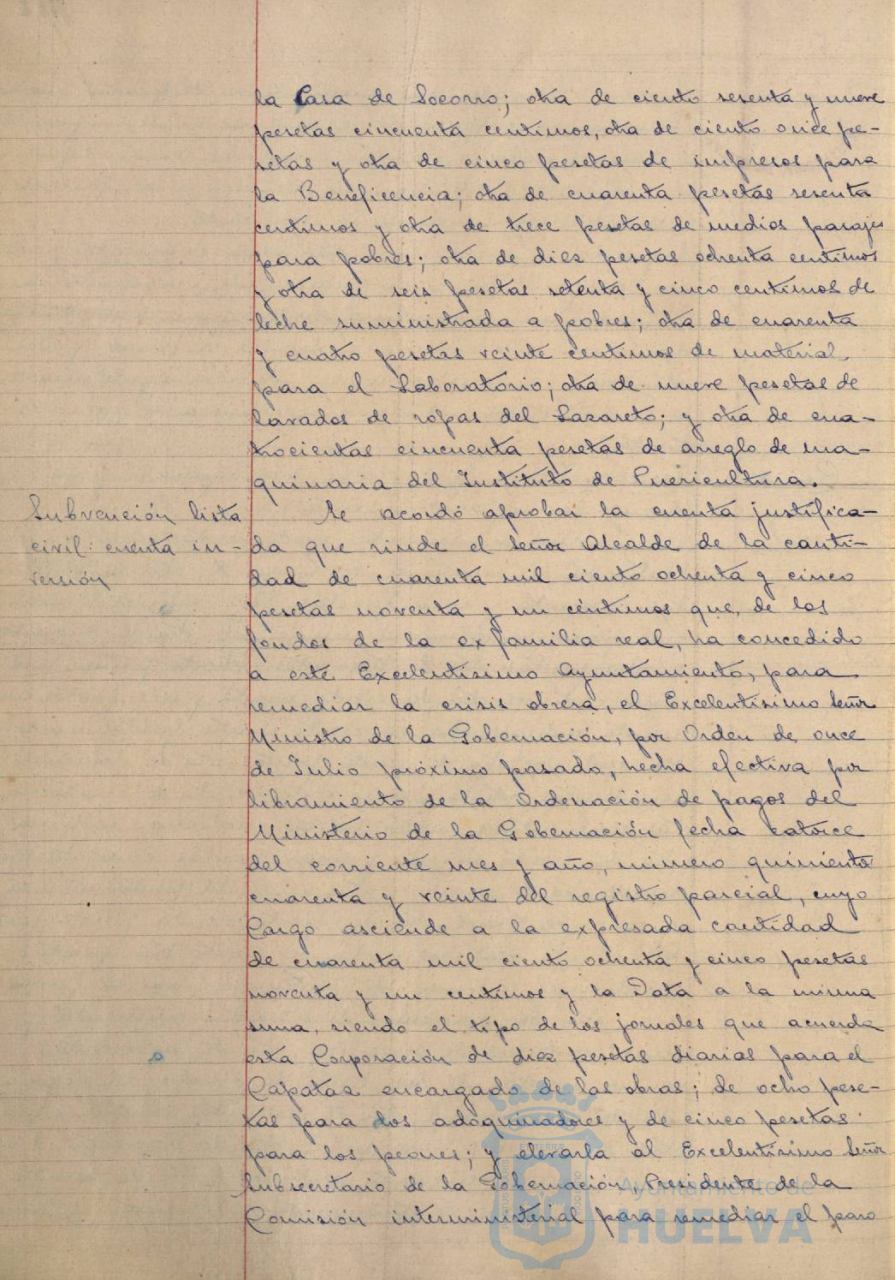 la Casa de Socorro; otra de ciento sesenta y nueve
pesetas cincuenta centimos, otra de ciento once pe-
setas y otra de cinco pesetas de impresos para
la Beneficencia; otra de cuarenta pesetas sesenta
centimos y otra de trece pesetas de medios pasajes
para pobres; otra de diez pesetas ochenta centimos
y otra de seis pesetas setenta y cinco centimos de
leche suministrada a pobres; otra de cuarenta
y cuatro pesetas veinte centimos de material
para el Laboratorio; otra de nueve pesetas de
lavados de ropas del Lazareto; y otra de cua-
trocientas cincuenta pesetas de arreglo de ma-
quinaria del Instituto de Puericultura.
Subvención lista
civil: cuenta in-
versión
Se acordó aprobar la cuenta justifica-
da que rinde el Señor Alcalde de la canti-
dad de cuarenta mil ciento ochenta y cinco
pesetas noventa y un céntimos que, de los
fondos de la ex familia real, ha concedido
a este Excelentísimo Ayuntamiento, para
remediar la crisis obrera, el Excelentísimo Señor
Ministro de la Gobernación, por Orden de once
de Julio próximo pasado, hecha efectiva por
libramiento de la Ordenación de pagos del
Ministerio de la Gobernación fecha catorce
del corriente mes y año, número quinientos
cuarenta y veinte del registro parcial, cuyo
Cargo asciende a la expresada cantidad
de cuarenta mil ciento ochenta y cinco pesetas
noventa y un centimos y la Data a la misma
suma, siendo el tipo de los jornales que acuerda
esta Corporación de diez pesetas diarias para el
Capataz encargado de las obras; de ocho pese-
tas para dos adoquinadores y de cinco pesetas
para los peones; y elevarla al Excelentísimo Señor
Subsecretario de la Gobernación, Presidente de la
Comisión interministerial para remediar el paro
Ayuntamiento de
HUELVA